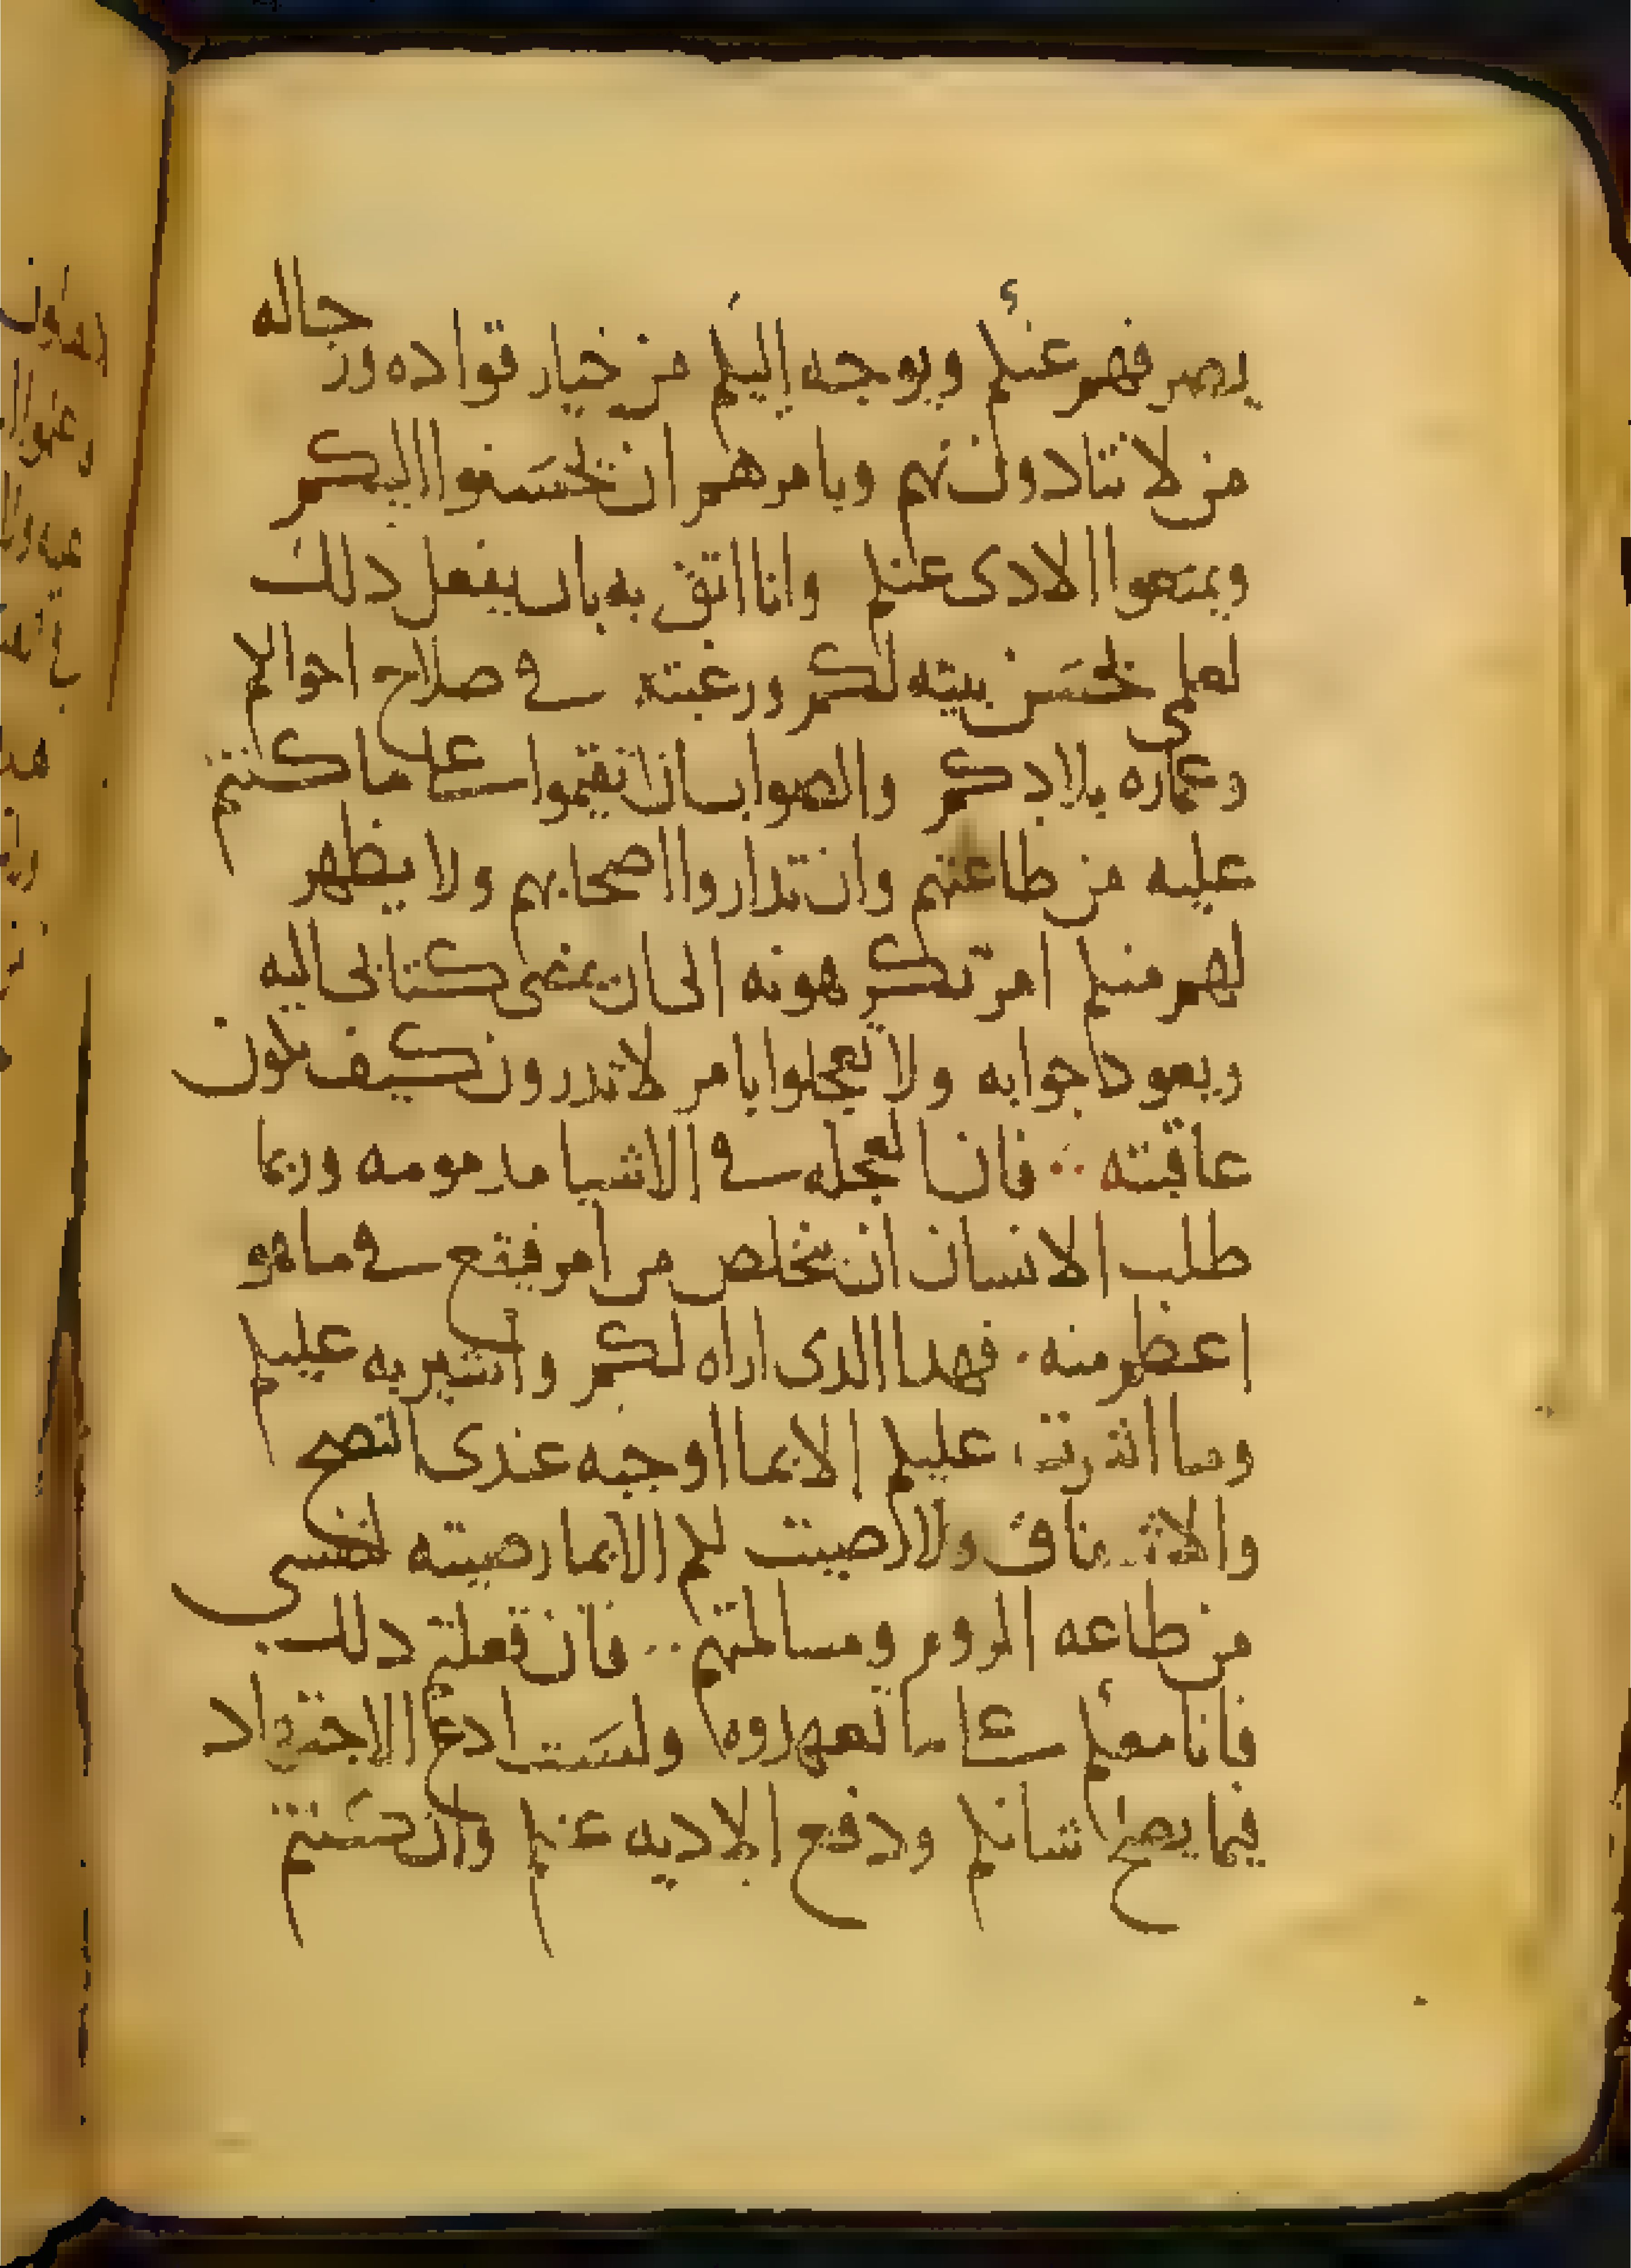 يصرفهم عنكم ويوجه اليكم من خيار قواده ورجاله
من لا تتادون بهم ويامرهم ان يحسنوا اليكم
ويمنعوا الادى عنكم وانا اثق به بان يفعل دلك
لعلمى بحسن نيته لكم ورغبته فى صلاح احوالكم
وعماره بلادكم والصواب ان تقيموا على ما كنتم
عليه من طاعتهم وان تداروا اصحابهم ولا يظهر
لهم منكم امر تكرهونه الى ان يمضى كتابى اليه
ويعود جوابه ولا تعجلوا بامر لا تدرون كيف تكون
عاقبته فان العجله فى الاشيا مدمومه وربما
طلب الانسان ان يتخلص من امر فيقع فى ما هو
اعظم منه فهدا الدى اراه لكم واشير به عليكم
وما اشرت عليكم الا بما اوجبه عندى النصح
والاشفاق ولا رضيت لكم الا بما رضيته لنفسى
من طاعه الروم ومسالمتهم فان فعلتم دلك
فانا معكم على ما تعهدوه ولست ادع الاجتهاد
فيما يصلح شانكم ودفع الاديه عنكم وان كنتم